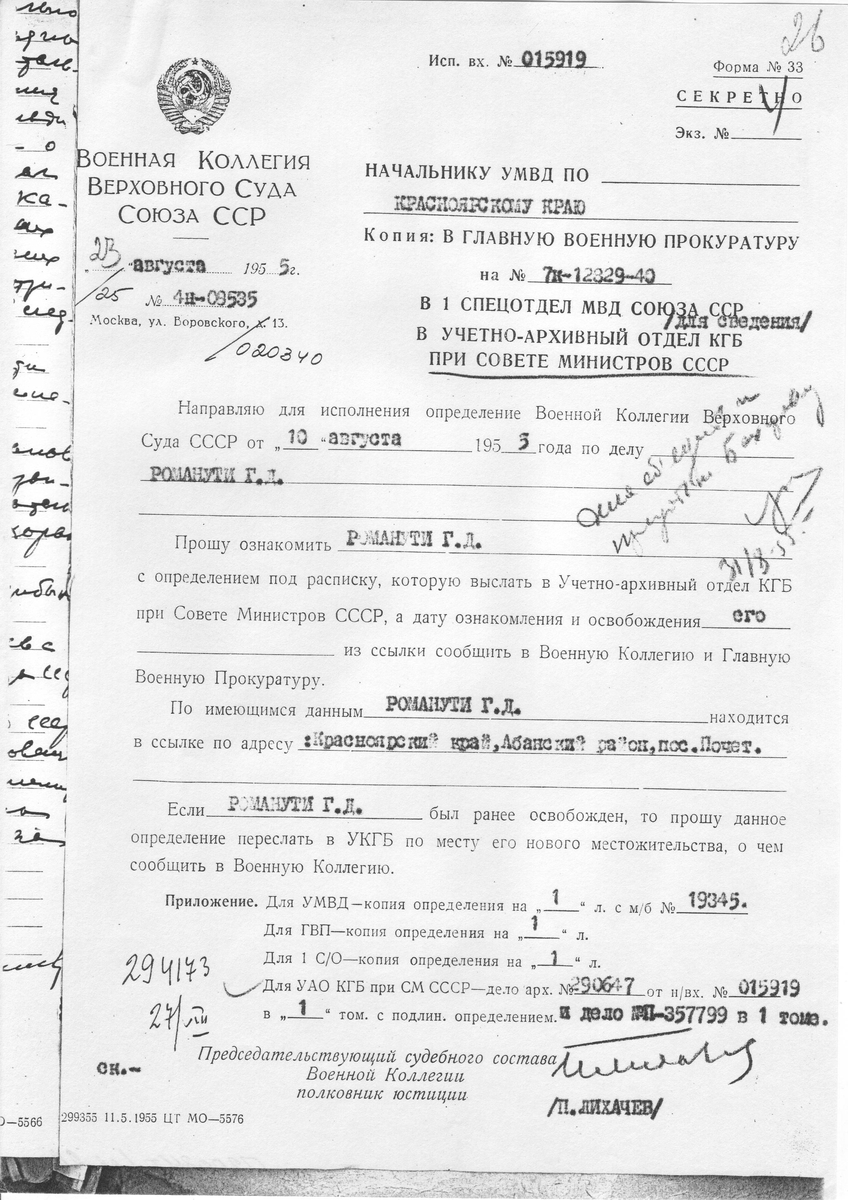 26
Исп. вх. № 015919
Форма № 33
СЕКРЕТНО
Экз. №
ВОЕННАЯ КОЛЛЕГИЯ
ВЕРХОВНОГО СУДА
СОЮЗА ССР
23 „августа 1955г.
/25 № 4н-09535
Москва, ул. Воровского, д. 13.
020340
НАЧАЛЬНИКУ УМВД ПО
КРАСНОЯРСКОМУ КРАЮ
Копия: В ГЛАВНУЮ ВОЕННУЮ ПРОКУРАТУРУ
на № 7к-12329-40
В 1 СПЕЦОТДЕЛ МВД СОЮЗА ССР
/для сведения/
В УЧЕТНО-АРХИВНЫЙ ОТДЕЛ КГБ
ПРИ СОВЕТЕ МИНИСТРОВ СССР
Направляю для исполнения определение Военной Коллегии Верховного
Суда СССР от „10 “августа 1955 года по делу
РОМАНУТИ Г.Д.
31/8-55
Прошу ознакомить РОМАНУТИ Г.Д.
с определением под расписку, которую выслать в Учетно-архивный отдел КГБ
при Совете Министров СССР, а дату ознакомления и освобождения его
из ссылки сообщить в Военную Коллегию и Главную
Военную Прокуратуру.
По имеющимся данным РОМАНУТИ Г.Д. находится
в ссылке по адресу :Красноярский край,Абанский район,пос.Почет.
Если РОМАНУТИ Г.Д. был ранее освобожден, то прошу данное
определение переслать в УКГБ по месту его нового местожительства, о чем
сообщить в Военную Коллегию.
Приложение. Для УМВД—копия определения на „1“ л. с м/б № 19345.
Для ГВП—копия определения на „1“ л.
Для 1 С/О—копия определения на „1“ л.
Для УАО КГБ при СМ СССР—дело арх. №290647 от н/вх. № 015919
в „1“ том. с подлин. определением. и дело №П-357799 в 1 томе.
294173
27/VIII
Председательствующий судебного состава
Военной Коллегии
полковник юстиции
ск.-
/П.ЛИХАЧЕВ/
О—5566
299355 11.5.1955 ЦТ МО—5576